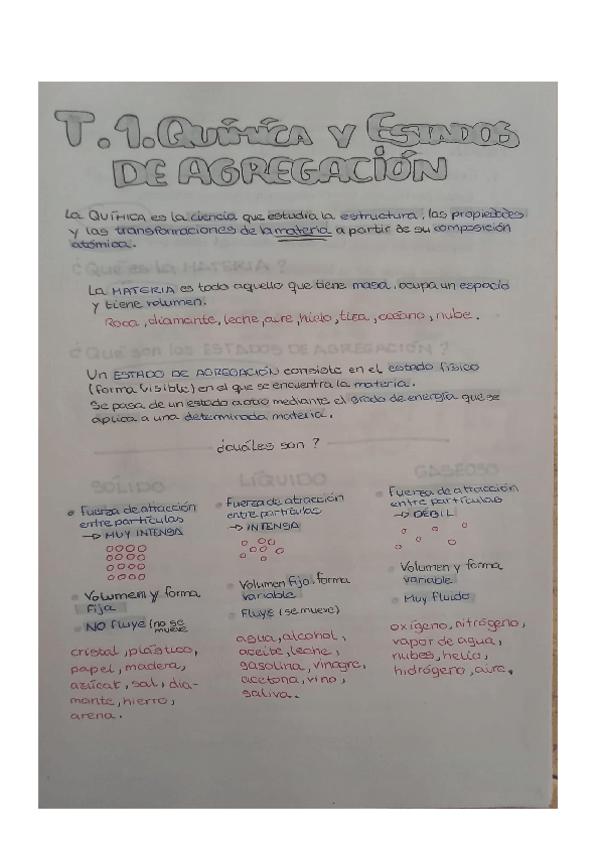 T.1. QUÍMICA Y ESTADOS
DE AGREGACIÓN
La QUÍMICA es la ciencia que estudia la estructura, las propiedades
y las transformaciones de la materia a partir de su composición
atómica.
¿Qué es la MATERIA?
La MATERIA es todo aquello que tiene masa, ocupa un espacio
y tiene volumen.
Roca, diamante, leche, aire, hielo, tiza, océano, nube.
¿Qué son los ESTADOS DE AGREGACIÓN?
Un ESTADO DE AGREGACIÓN consiste en el estado físico
(forma visible) en el que se encuentra la materia.
Se pasa de un estado a otro mediante el grado de energía que se
aplica a una determinada materia.
¿cuáles son?
SÓLIDO
Fuerza de atracción
entre partículas
→ MUY INTENSA
Volumen y forma
fija
NO fluye (no se
mueve
cristal, plástico,
papel, madera,
azúcar, sal, dia-
mante, hierro,
arena.
LÍQUIDO
Fuerza de atracción
entre partículas
→ INTENSA
Volumen fijo, forma
variable
Fluye (se mueve)
agua, alcohol,
aceite, leche,
gasolina, vinagre,
acetona, vino,
saliva.
GASEOSO
Fuerza de atracción
entre partículas
→ DÉBIL
Volumen y forma
variable
Muy fluido
oxígeno, nitrógeno,
vapor de agua,
nubes, helio,
hidrógeno, aire.